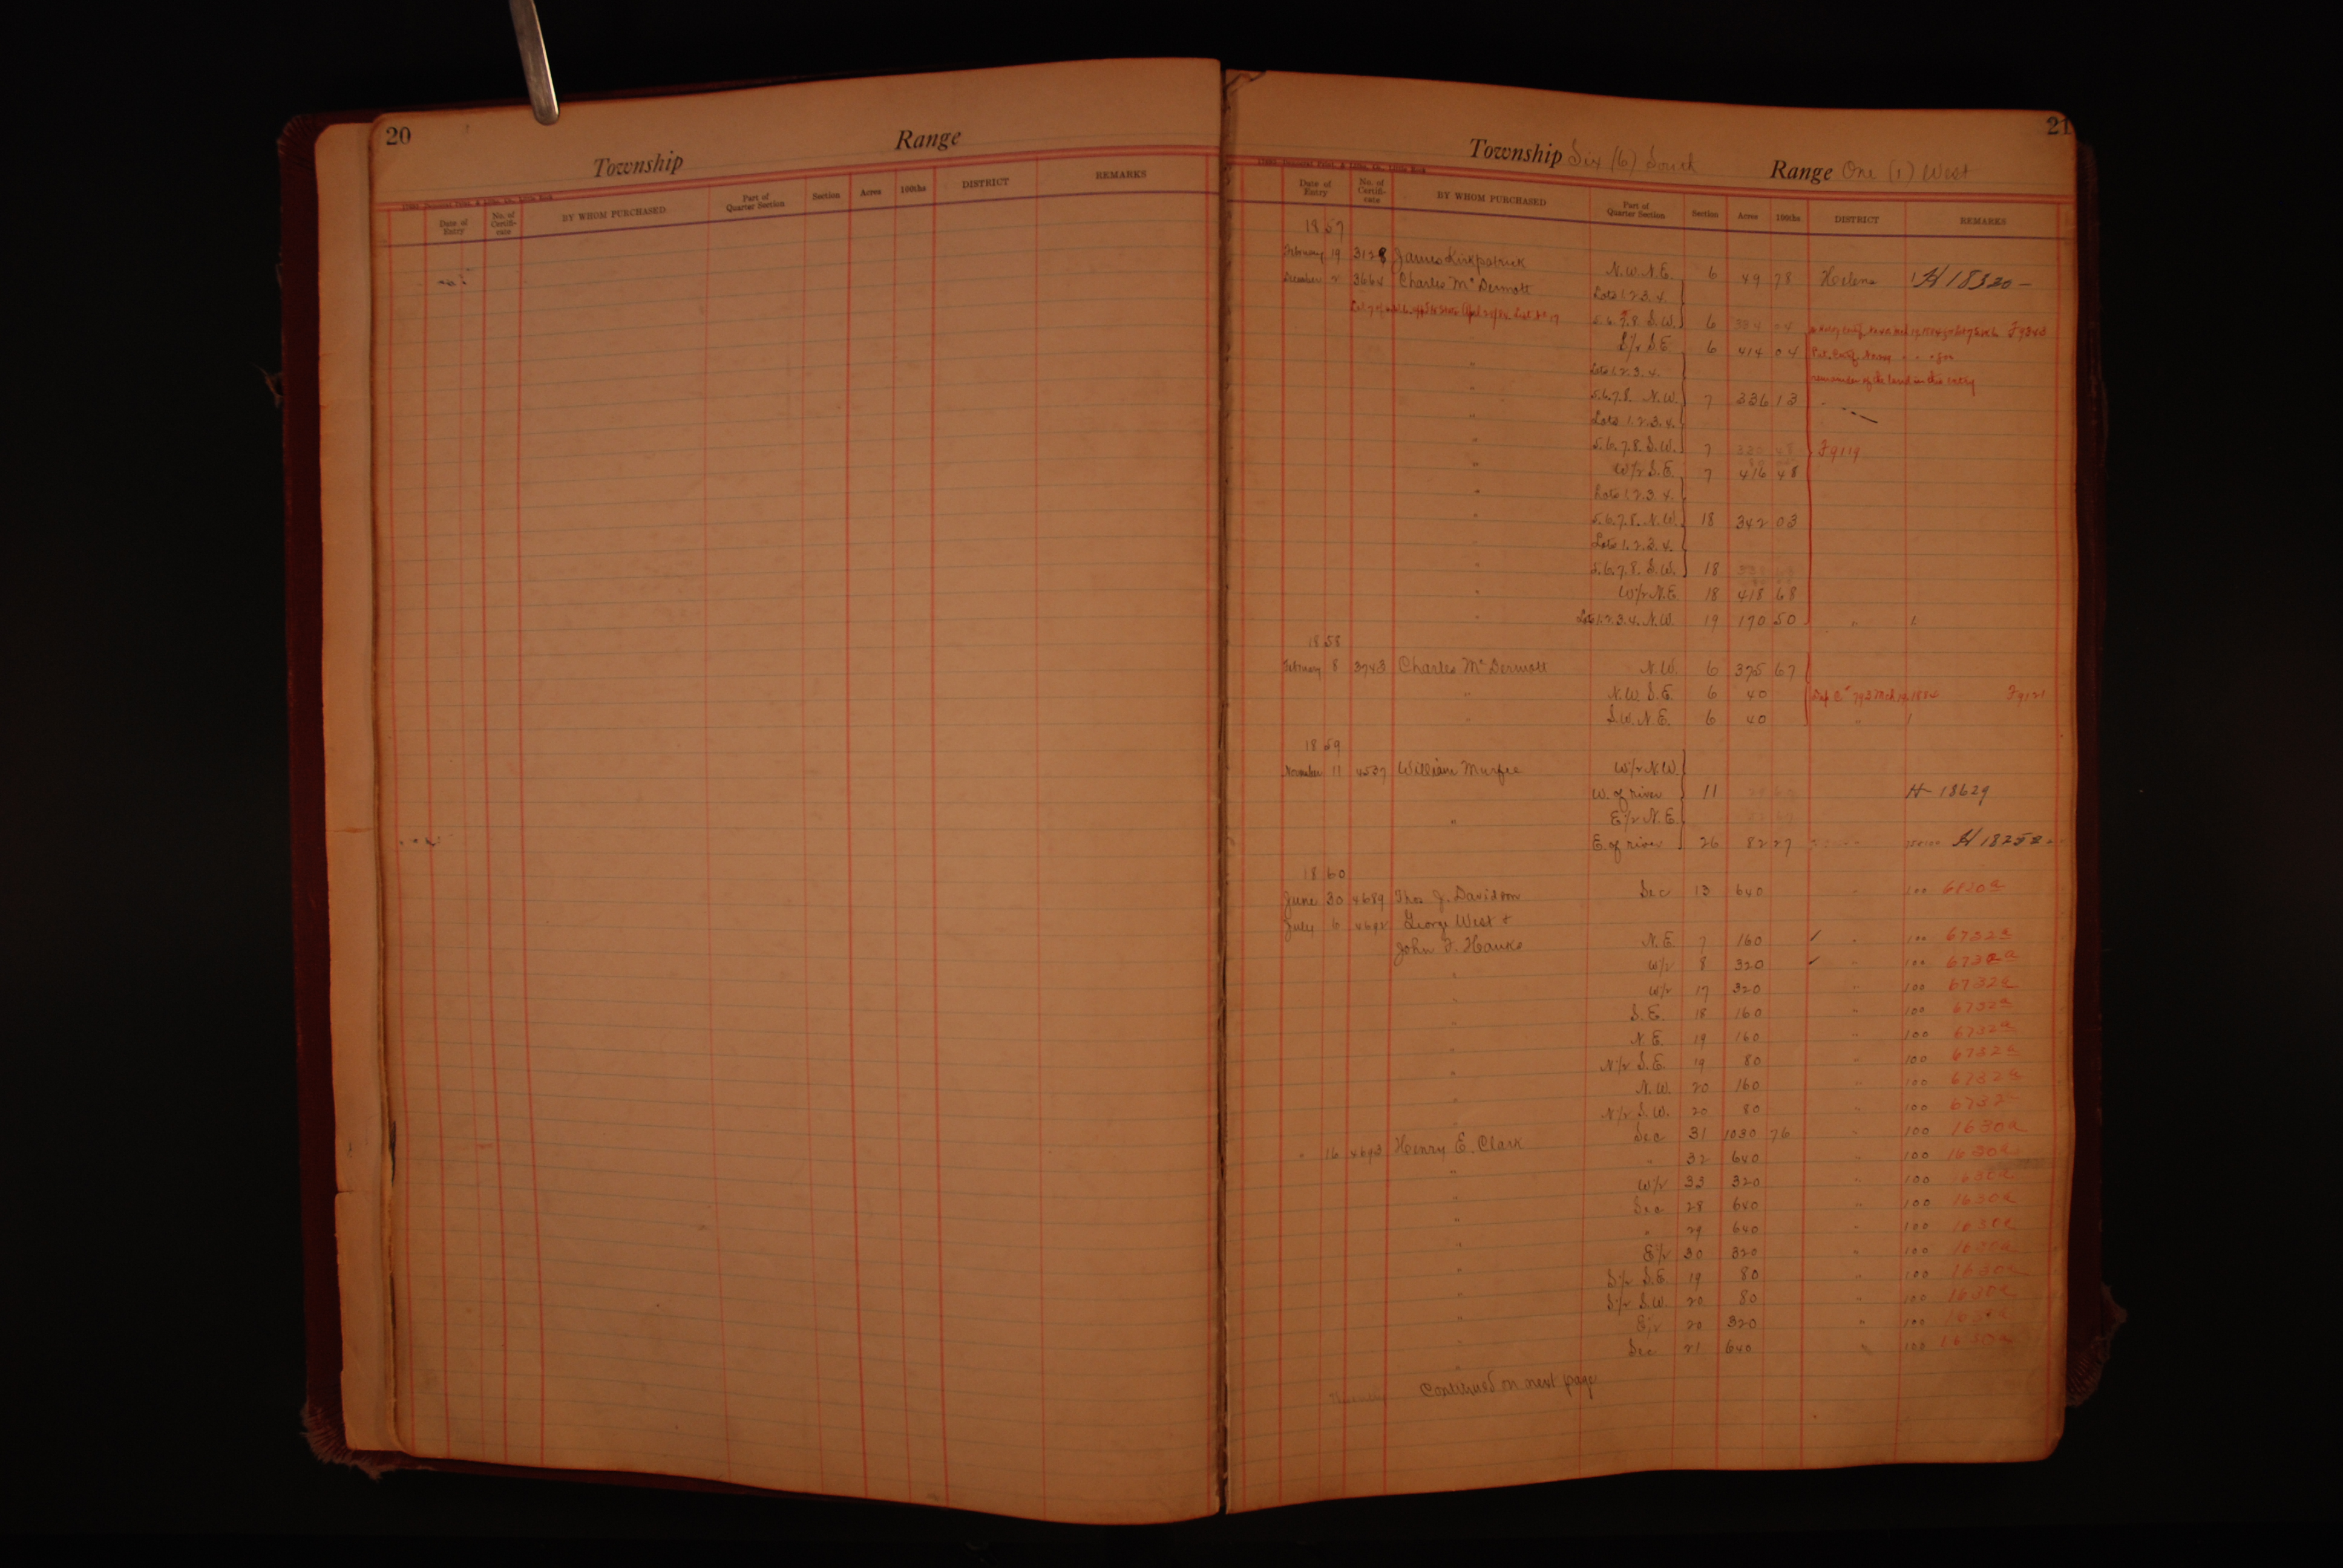 20
Township
Range
Date of Entry
No. of Certifi-cate
BY WHOM PURCHASED
Part of Quarter Section
Section
Acres
100ths
DISTRICT
REMARKS
21
Township Six (6) South Range One (1) West
Date of Entry
No. of Certifi-cate
BY WHOM PURCHASED
Part of Quarter Section
Section
Acres
100ths
DISTRICT
REMARKS
1857
February 19 3128 James Kirkpatrick N.W. N.E. 6 49 78 Helena H 18320
December 2 3664 Charles McDermott Lots 1.2.3.4.
5.6.7.8 S.W. 6
S/2 S.E. 6 414 04
" Lots 1.2.3.4.
remainder of the land in this entry
" 5.6.7.8. N.W. 7 336 13
" Lots 1.2.3.4.
" 5.6.7.8. S.W. 7 F9119
" W/2 S.E. 7 416 48
" Lots 1.2.3.4.
" 5.6.7.8. N.W. 18 342 03
Lots 1.2.3.4.
" 5.6.7.8. S.W. 18
" W/2 N.E. 18 418 68
" Lots 1.2.3.4. N.W. 19 170 50 "
1858
February 8 3743 Charles McDermott N.W. 6 375 67
" N.W. S.E. 6 40 F9121
" S.W. N.E. 6 40 "
1859
November 11 4537 William Murfee W/2 N.W.
W. of river 11 H 18629
" E/2 N.E.
E of river 26 82 27 H 1825
1860
June 30 4689 Thos J. Davidson Sec 13 640 " 100
July 6 4692 George West &
John F. Hanks N.E. 7 160 ✓ " 100 6732a
" W/2 8 320 ✓ " 100 6732a
" W/2 17 320 " 100 6732a
" S.E. 18 160 " 100 6732a
" N.E. 19 160 " 100 6732a
" N/2 S.E. 19 80 " 100 6732a
" N.W. 20 160 " 100 6732a
" N/2 S.W. 20 80 " 100 6732a
" 16 4693 Henry E. Clark Sec 31 1030 76 " 100 1630a
" " 32 640 " 100 1630a
" W/2 33 320 " 100 1630a
" Sec 28 640 " 100 1630a
" " 29 640 " 100 1630a
" E/2 30 320 " 100 1630a
" S/2 S.E. 19 80 " 100 1630a
" S/2 S.W. 20 80 " 100 1630a
" E/2 20 320 " 100 1630a
" Sec 21 640 " 100 1630a
Continued on next page